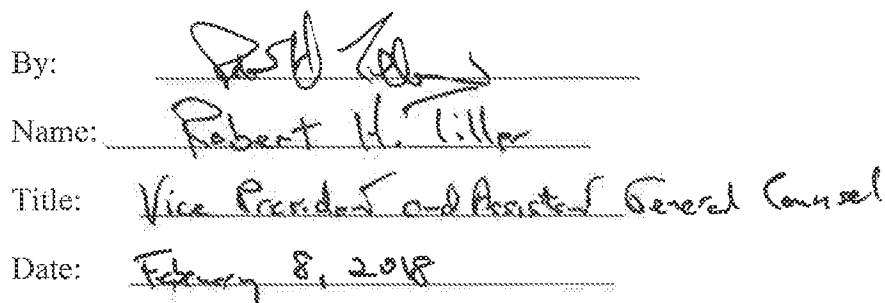 By:
Name: Robert H. Tiller
Title: Vice President and Assistant General Counsel
Date: February 8, 2018